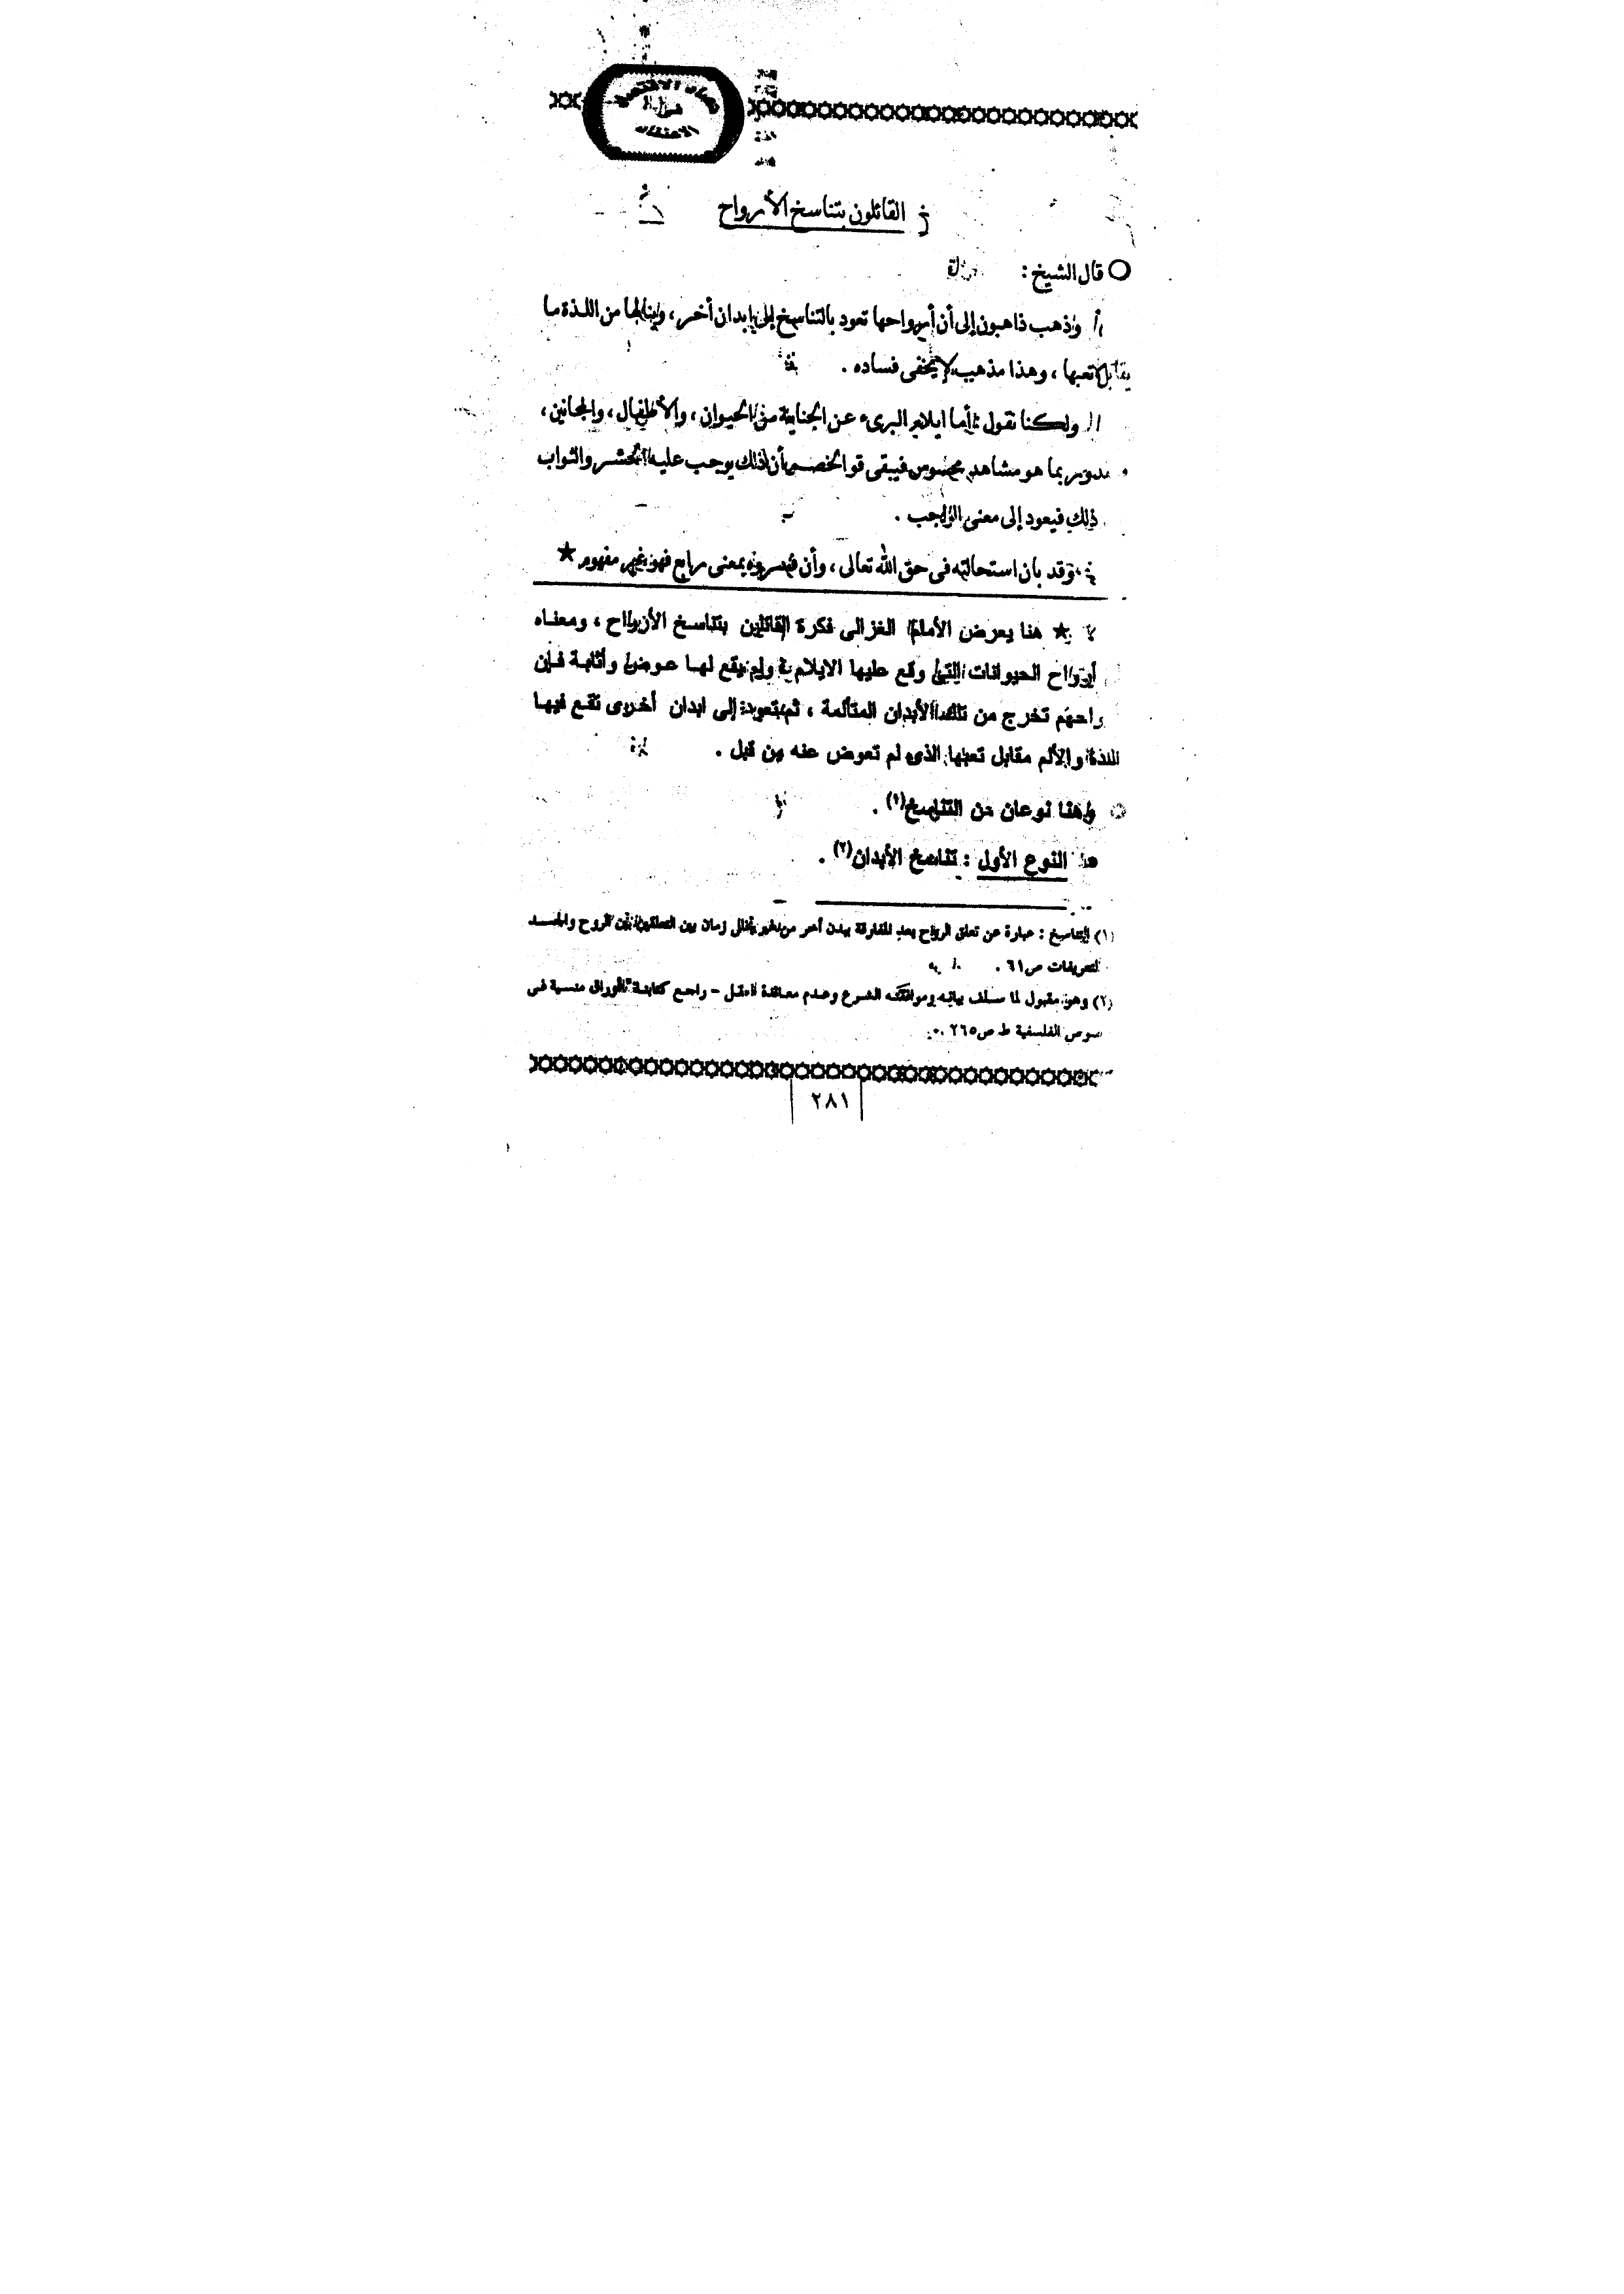 القائلون بتناسخ الأرواح
قال الشيخ :
وذهب ذاهبون إلى أن أرواحها تعود بالتناسخ إلى إبدان أخر ، وينالها من اللذة ما
يقابل تعبها ، وهذا مذهب لا يخفى فساده .
ولكنا نقول : أما ايلام البرىء عن الجناية من الحيوان ، والأطفال ، والمجانين ،
بما هو مشاهد محسوس فيبقى قوا الخصم أن ذلك يوجب عليه الحشر والثواب
ذلك فيعود إلى معنى الواجب .
وقد بان استحالته فى حق الله تعالى ، وأن فسروه بمعنى رابع فهو غير مفهوم ★
★ هنا يعرض الأمام الغزالى فكرة القائلين بتناسخ الأرواح ، ومعناه
أرواح الحيوانات التى وقع عليها الايلام ولم يقع لها عوض وأثابة فإن
تخرج من تلك الأبدان المتألمة ، ثم تعود إلى ابدان أخرى تقع فيها
اللذة والألم مقابل تعبها الذى لم تعوض عنه من قبل .
وهنا نوعان من التناسخ(١) .
النوع الأول : تناسخ الأبدان(٢) .
(١) التناسخ : عبارة عن تعلق الروح بعد المفارقة ببدن آخر من غير تخلل زمان بين التعلقين بين الروح والجسد
التعريفات ص٦١ .
(٢) وهو مقبول لما سلف بيانه وموافقته الشرع وعدم معاندة العقل – راجع كتابنا أوراق منسية فى
الفلسفية ط ص٢٦٥ .
٢٨١